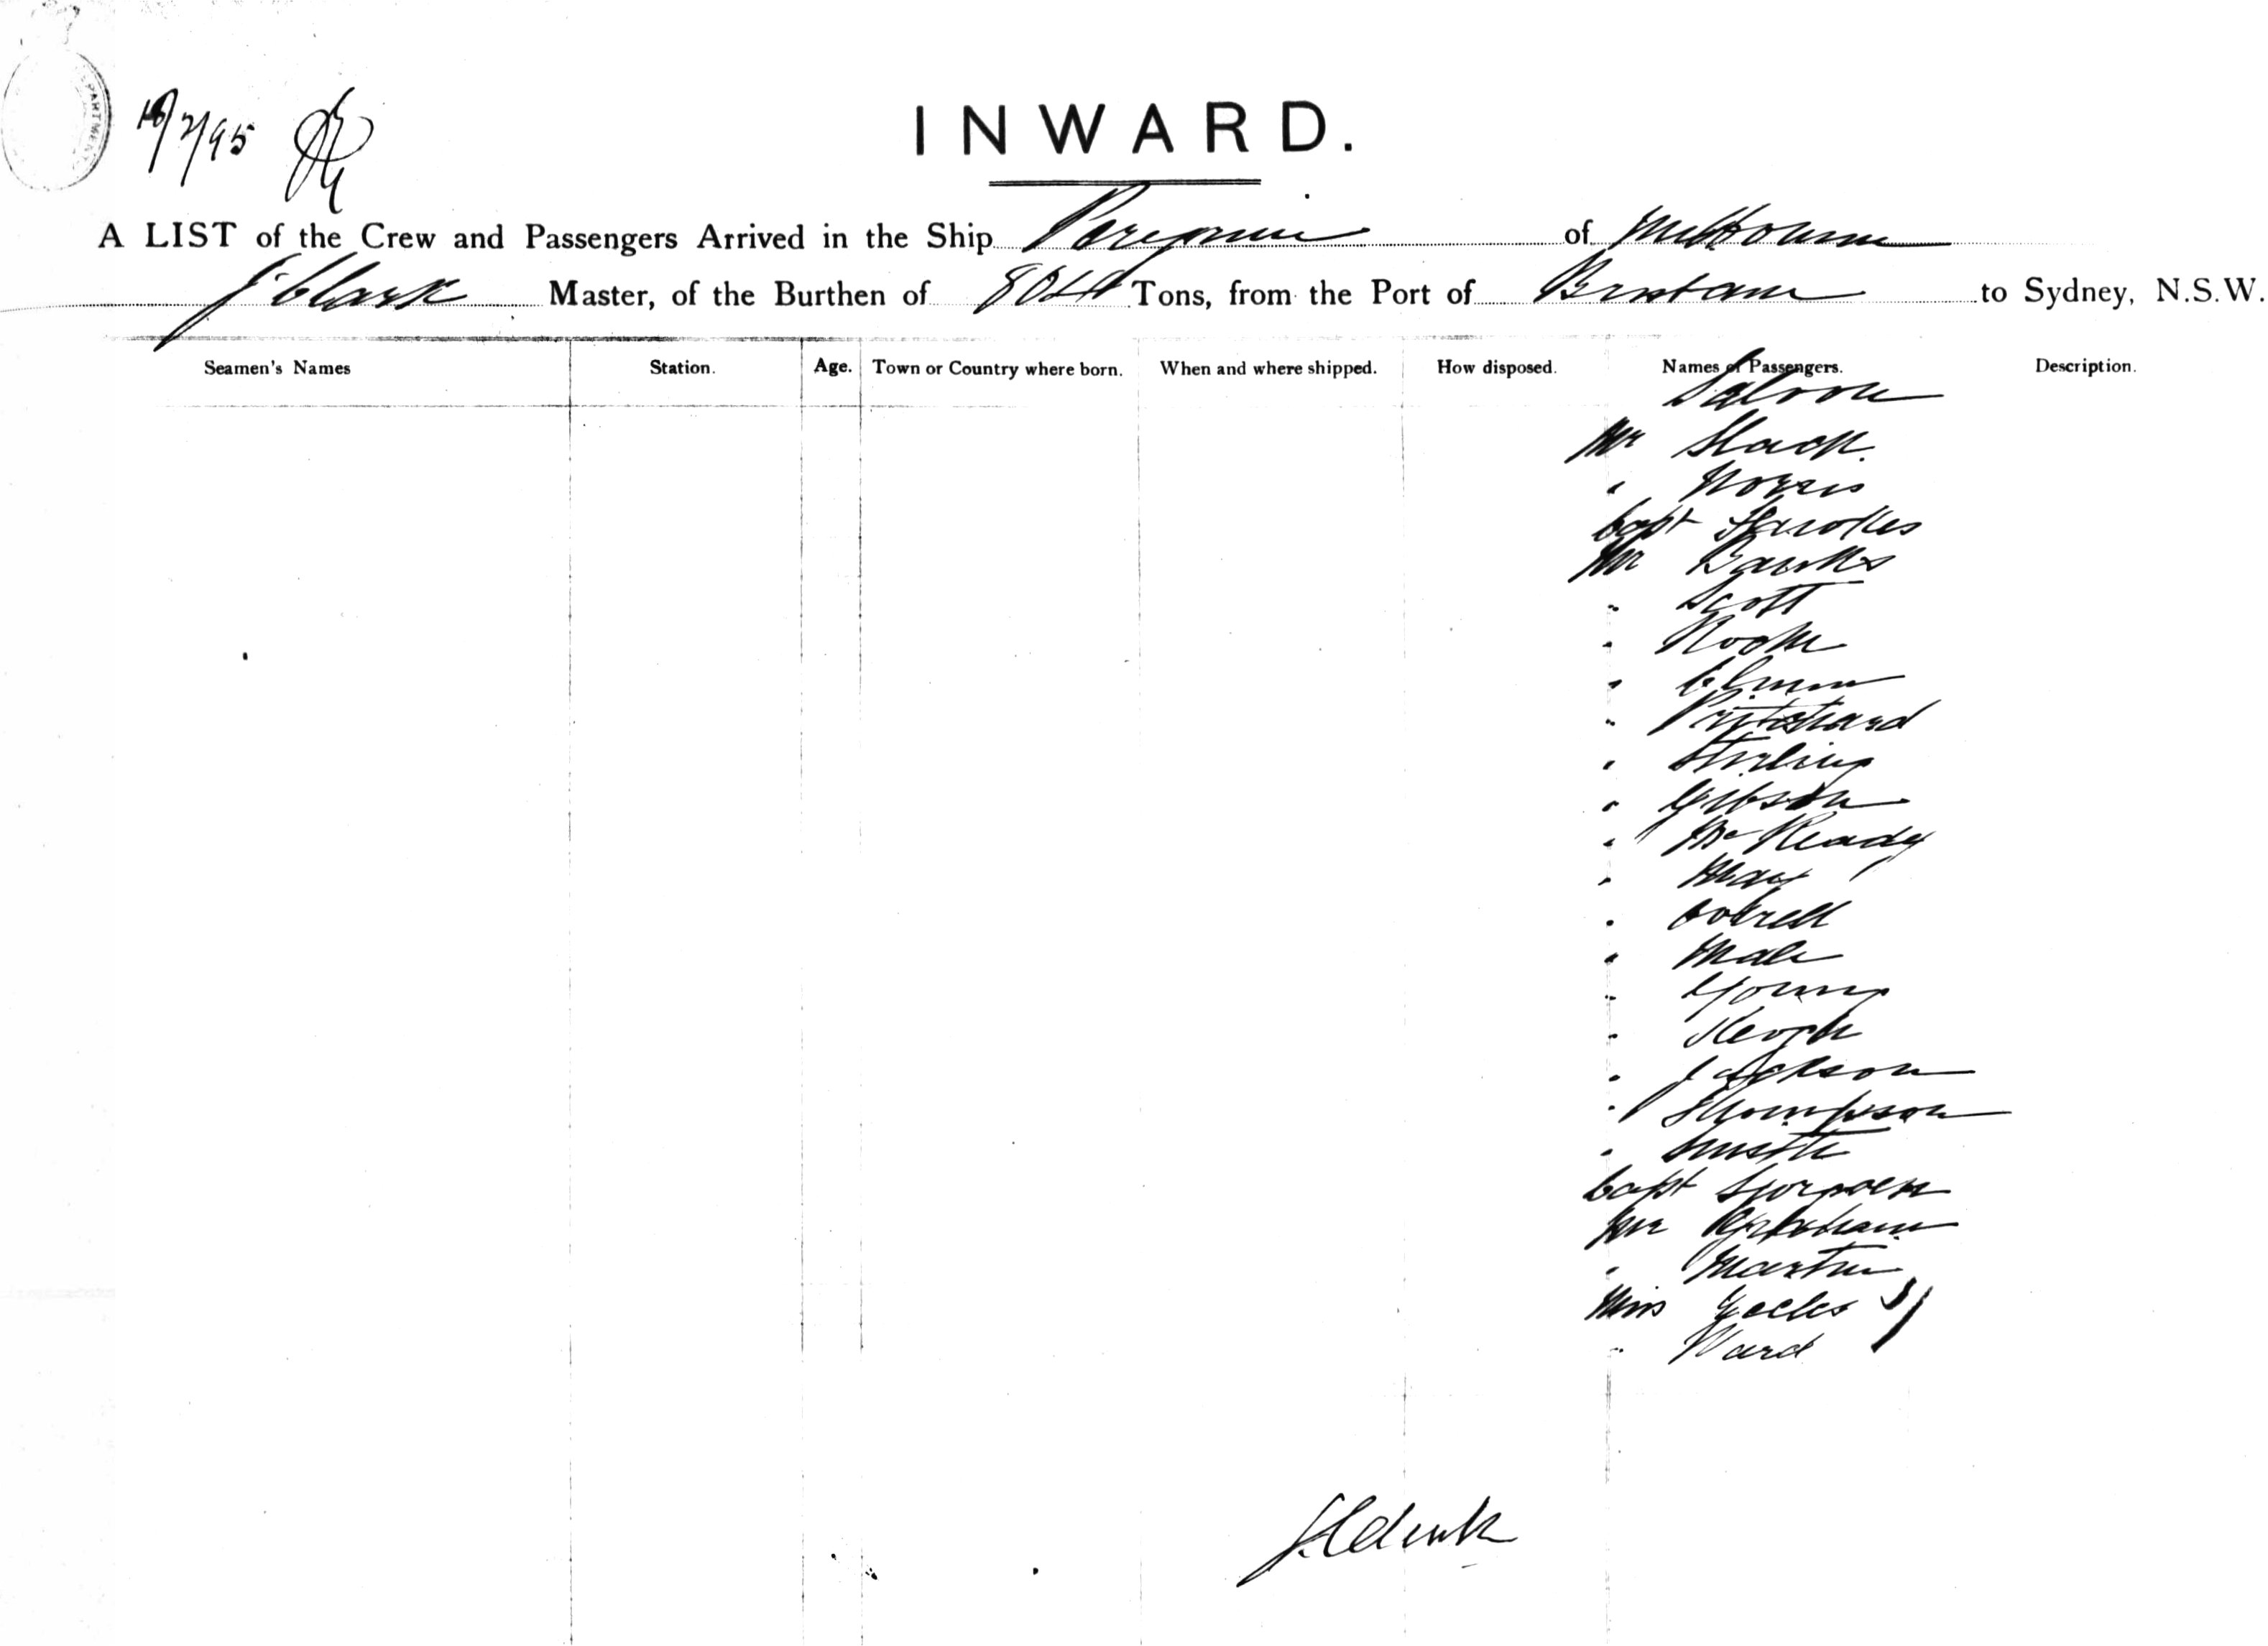 PARTMENT
/95
INWARD.
A LIST of the Crew and Passengers Arrived in the Ship of Melbourne
J Clark Master, of the Burthen of Tons, from the Port of Brisbane to Sydney, N.S.W.
Seamen's Names Station. Age. Town or Country where born. When and where shipped. How disposed. Names of Passengers. Description.
Saloon
Mr Slack.
" Norris
Capt Hawkes
Mr Banks
" Scott
"
"
" Pritchard
" Stirling
" Gibson
" McReady
" May
"
" Male
" Young
" Keogh
" Jackson
" Thompson
"
Capt
Mr
" Martin
Miss Eccles
" Ward
J Clark